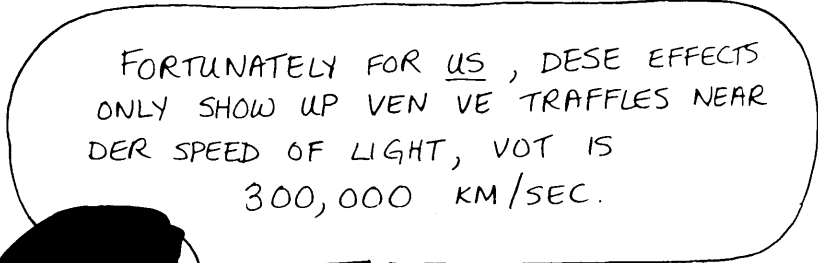 FORTUNATELY FOR US, DESE EFFECTS
ONLY SHOW UP VEN VE TRAFFLES NEAR
DER SPEED OF LIGHT, VOT IS
300,000 KM/SEC.